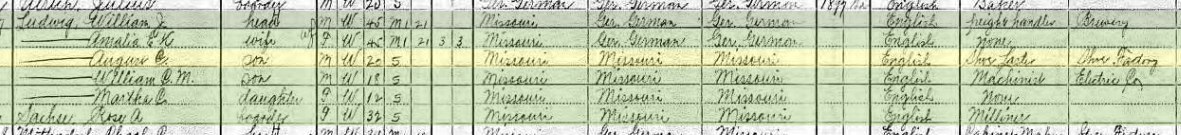 Julius boarder M W 20 S Ger. German Ger. German Ger. German English Baker
Ludwig William J. head M W 45 M1 21 Missouri Ger. German Ger. German English freight handler Brewery
Amalia E K wife F W 45 M1 21 3 3 Missouri Ger. German Ger. German English none
August C. son M W 20 S Missouri Missouri Missouri English Shoe Laster Shoe Factory
William C. M. son M W 18 S Missouri Missouri Missouri English Machinist Electric Co
Martha C. daughter F W 12 S Missouri Missouri Missouri English None
Sachse, Rose A boarder F W 32 S Missouri Missouri Missouri English Milliner